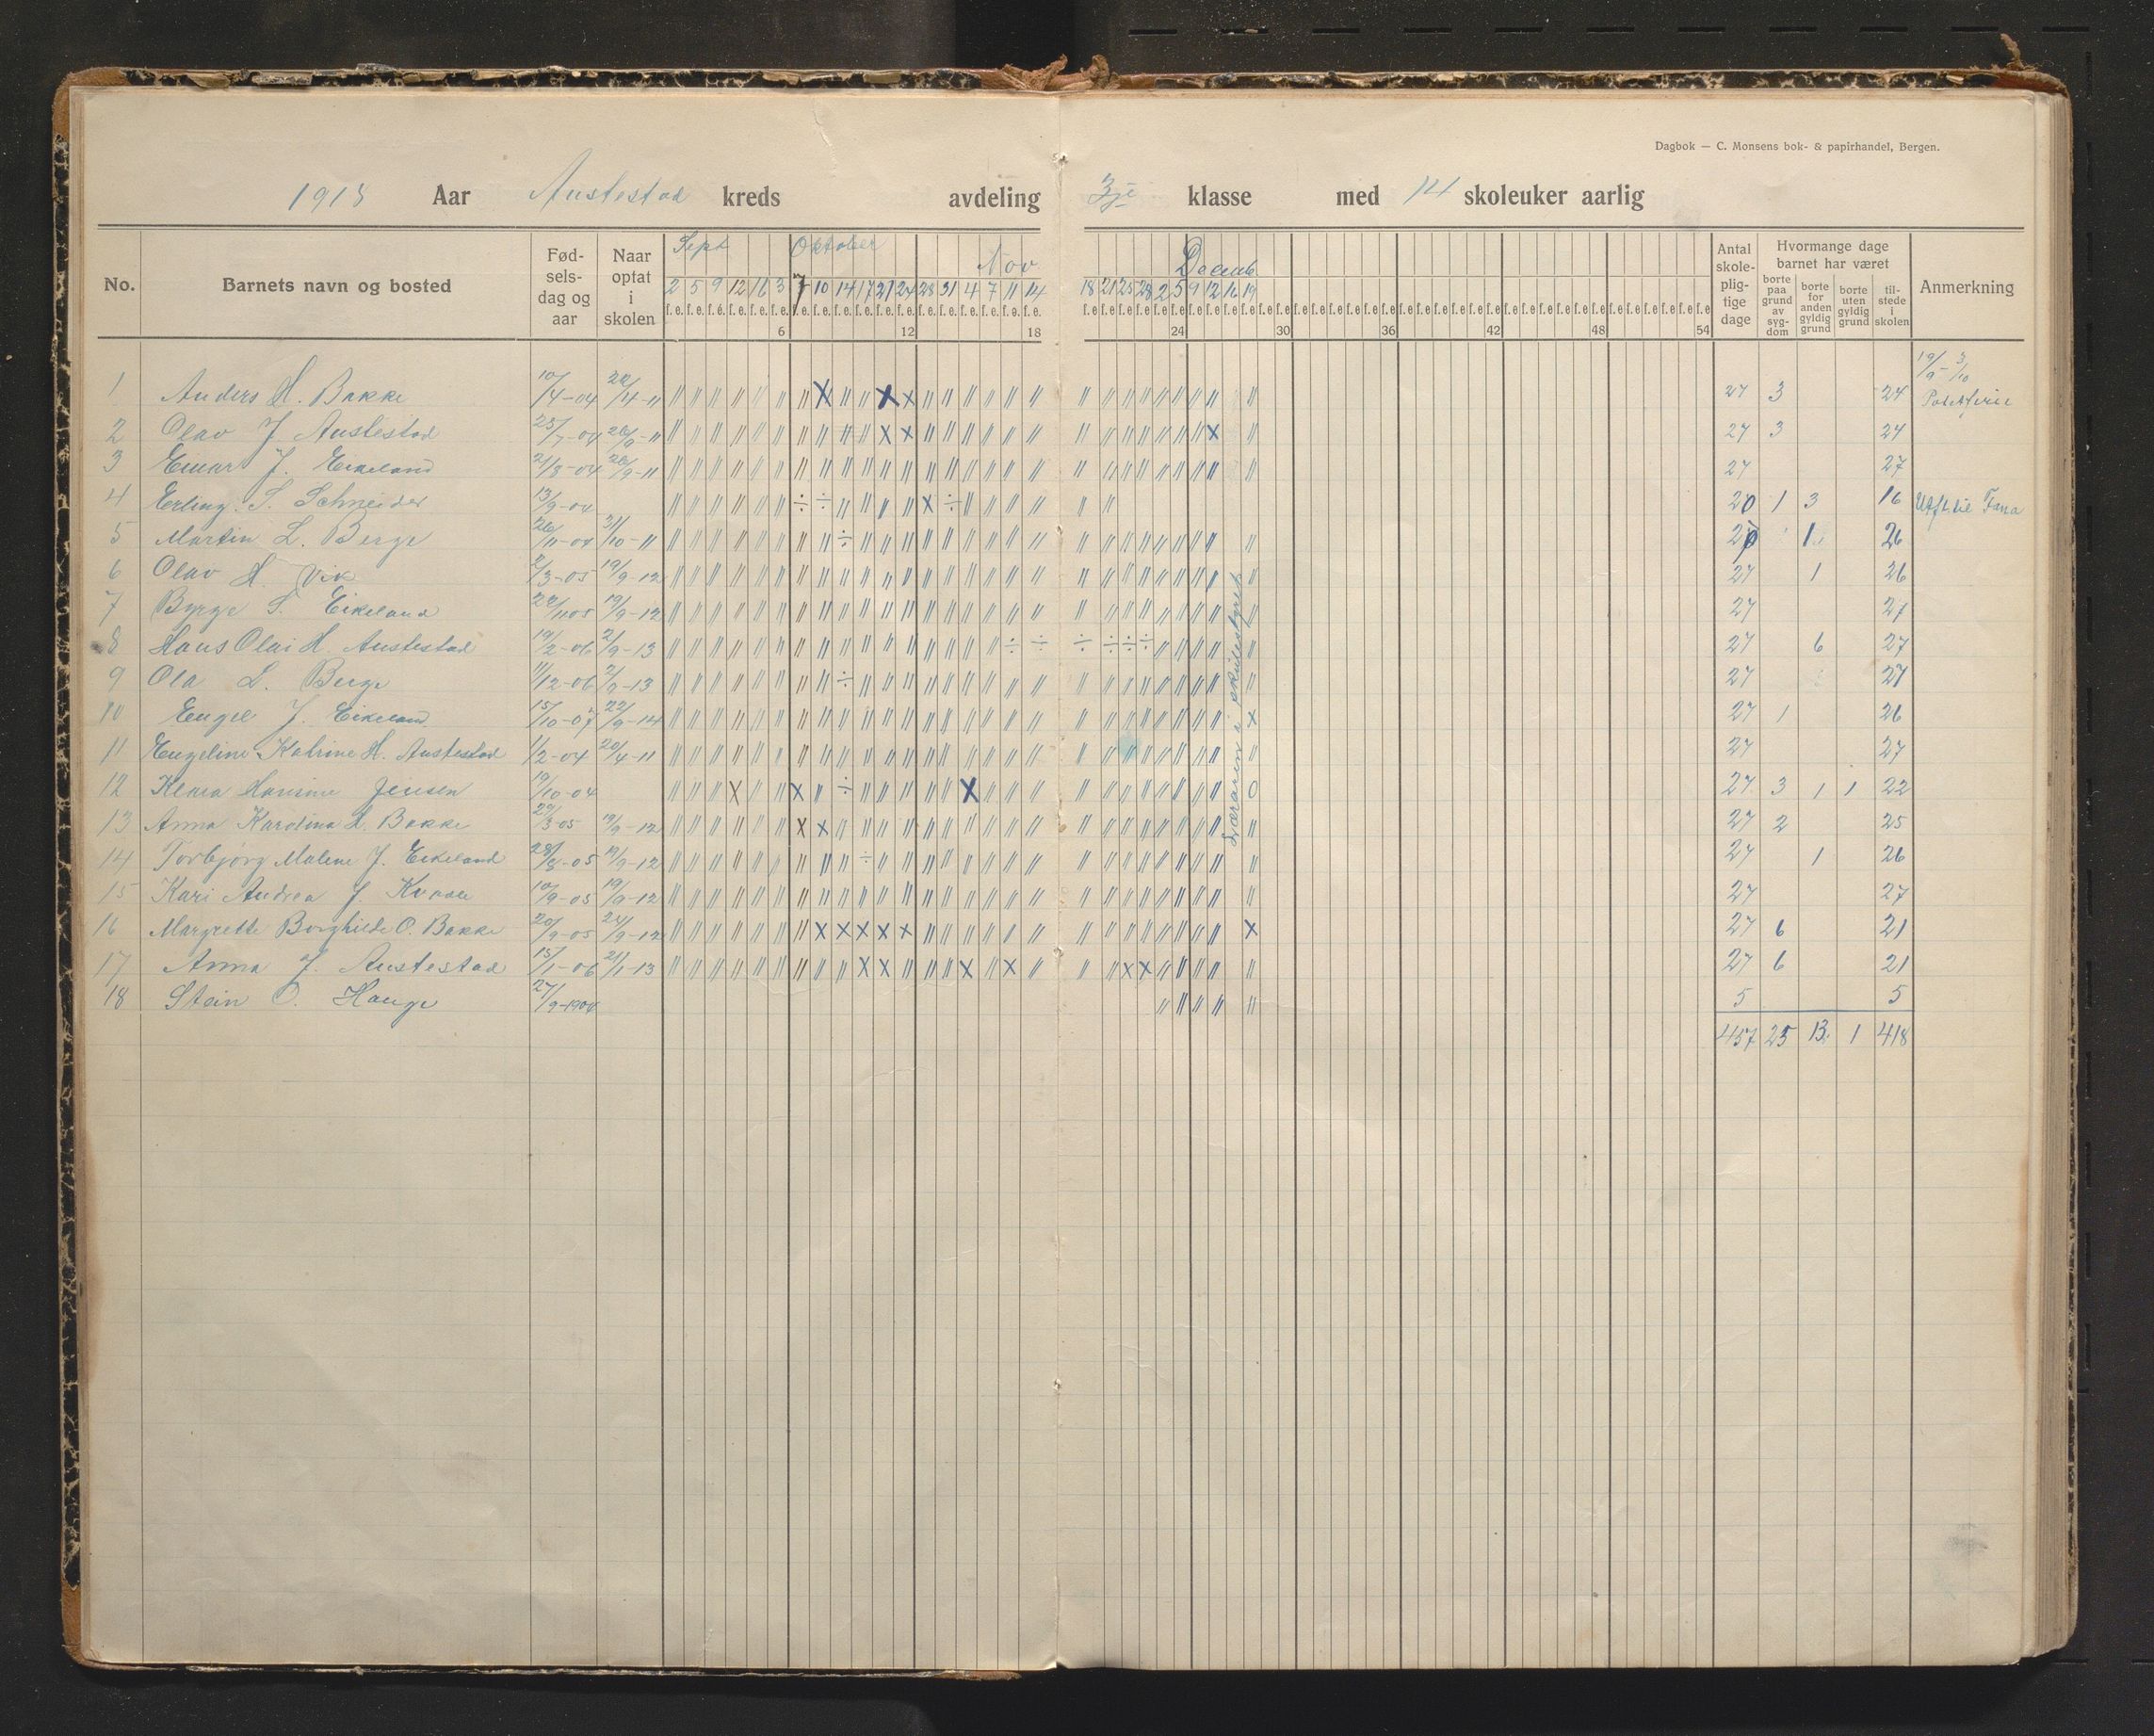 Dagbok — C. Monsens bok- & papirhandel, Bergen.
Aar Austestad kreds avdeling 3je klasse med 14 skoleuker aarlig
No. Barnets navn og bosted Fød-sels-dag og aar Naar optat i skolen Sept Oktober Nov Decemb Antal skole-plig-tige dage Hvormange dage barnet har været Anmerkning
borte paa grund av syg-dom borte for anden gyldig grund borte uten gyldig grund til-stede i skolen
2 5 9 12 16 3 7 10 14 17 21 24 28 31 4 7 11 14 18 21 25 28 2 5 9 12 16 19
f. e. f. e. f. e. f. e. f. e. f. e. f. e. f. e. f. e. f. e. f. e. f. e. f. e. f. e. f. e. f. e. f. e. f. e.
6 12 18 24 30 36 42 48 54
19/9 - 3/10
1 Anders H. Bakke 10/4-04 27 3 24
2 Olav J Austestad 25/7-04 27 3 24
3 Einar J. Eikeland 21/8-04 27 27
4 Erling S. Schneider 13/9-04 20 1 3 16 Utfl. til Fana
5 Martin L. Berge 26/11-04 31/10-11 1 26
6 Olav H. Vik 2/3-05 19/9-12 27 1 26
7 Byrge S. Eikeland 19/9-12 27 27
8 Hans Olai H. Austestad 19/2-06 2/9-13 27 6 27
9 Ola L. Berge 11/12-06 2/9-13 27 27
10 Engel J. Eikeland 15/10-07 22/9-14 27 1 26
11 Engeline Katrine H. Austestad 1/2-04 20/4-11 27 27
12 Klara Hansine Jensen 19/10-04 27 3 1 1 22
13 Anna Karolina L. Bakke 19/9-12 27 2 25
14 Torbjørg Malene J. Eikeland 28/8-05 19/9-12 27 1 26
15 Kari Andrea J. 10/9-05 19/9-12 27 27
16 Margrette Borghilde O. Bakke 20/9-05 24/9-12 27 6 21
17 Anna J. Austestad 15/1-06 21/1-13 27 6 21
18 Stein O. Hauge 27/9-1904 5 5
457 25 13 1 418
Læraren i skulestyret